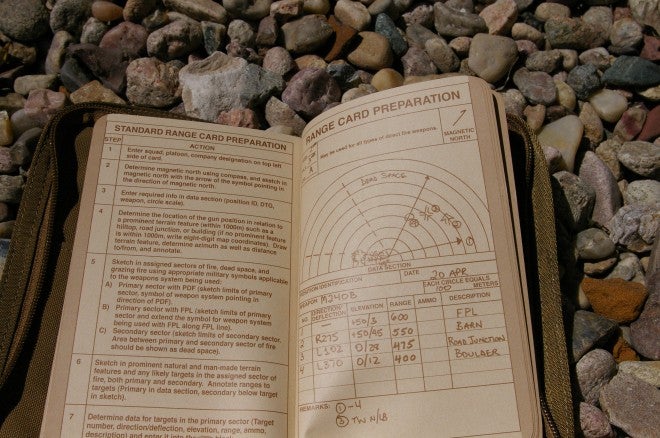 STANDARD RANGE CARD PREPARATION
STEP ACTION
1 Enter squad, platoon, company designation on top left
side of card.
2 Determine magnetic north using compass, and sketch in
magnetic north with the arrow of the symbol pointing in
the direction of magnetic north.
3 Enter required info in data section (position ID, DTG,
weapon, circle scale).
4 Determine the location of the gun position in relation to
a prominent terrain feature (within 1000m) such as a
hilltop, road junction, or building (if no prominent feature
is within 1000m, write eight-digit map coordinates). Draw
terrain feature, determine azimuth as well as distance
to/from, and annotate.
5 Sketch in assigned sectors of fire, dead space, and
grazing fire using appropriate military symbols applicable
to the weapons system being used:
A) Primary sector with PDF (sketch limits of primary
sector, symbol of weapon system pointing in
direction of PDF).
B) Primary sector with FPL (sketch limits of primary
sector and extend the symbol for weapon system
being used with FPL along FPL line).
C) Secondary sector (sketch limits of secondary sector.
Area between primary and secondary sector of fire
should be shown as dead space).
6 Sketch in prominent natural and man-made terrain
features and any likely targets in the assigned sector of
fire, both primary and secondary. Annotate ranges to
targets (Primary in data section, secondary below target
in sketch).
7 Determine data for targets in the primary sector (Target
number, direction/deflection, elevation, range, ammo,
description) and enter it into the
RANGE CARD PREPARATION
May be used for all types of direct fire weapons.
MAGNETIC
NORTH
DEAD SPACE
DATA SECTION
POSITION IDENTIFICATION DATE 20 APR
WEAPON M240B EACH CIRCLE EQUALS
100 METERS
NO. DIRECTION/
DEFLECTION ELEVATION RANGE AMMO DESCRIPTION
+50/3 600 FPL
2 R275 +50/45 550 BARN
3 L102 0/28 475 ROAD JUNCTION
4 L370 0/12 400 BOULDER
REMARKS: ① -4